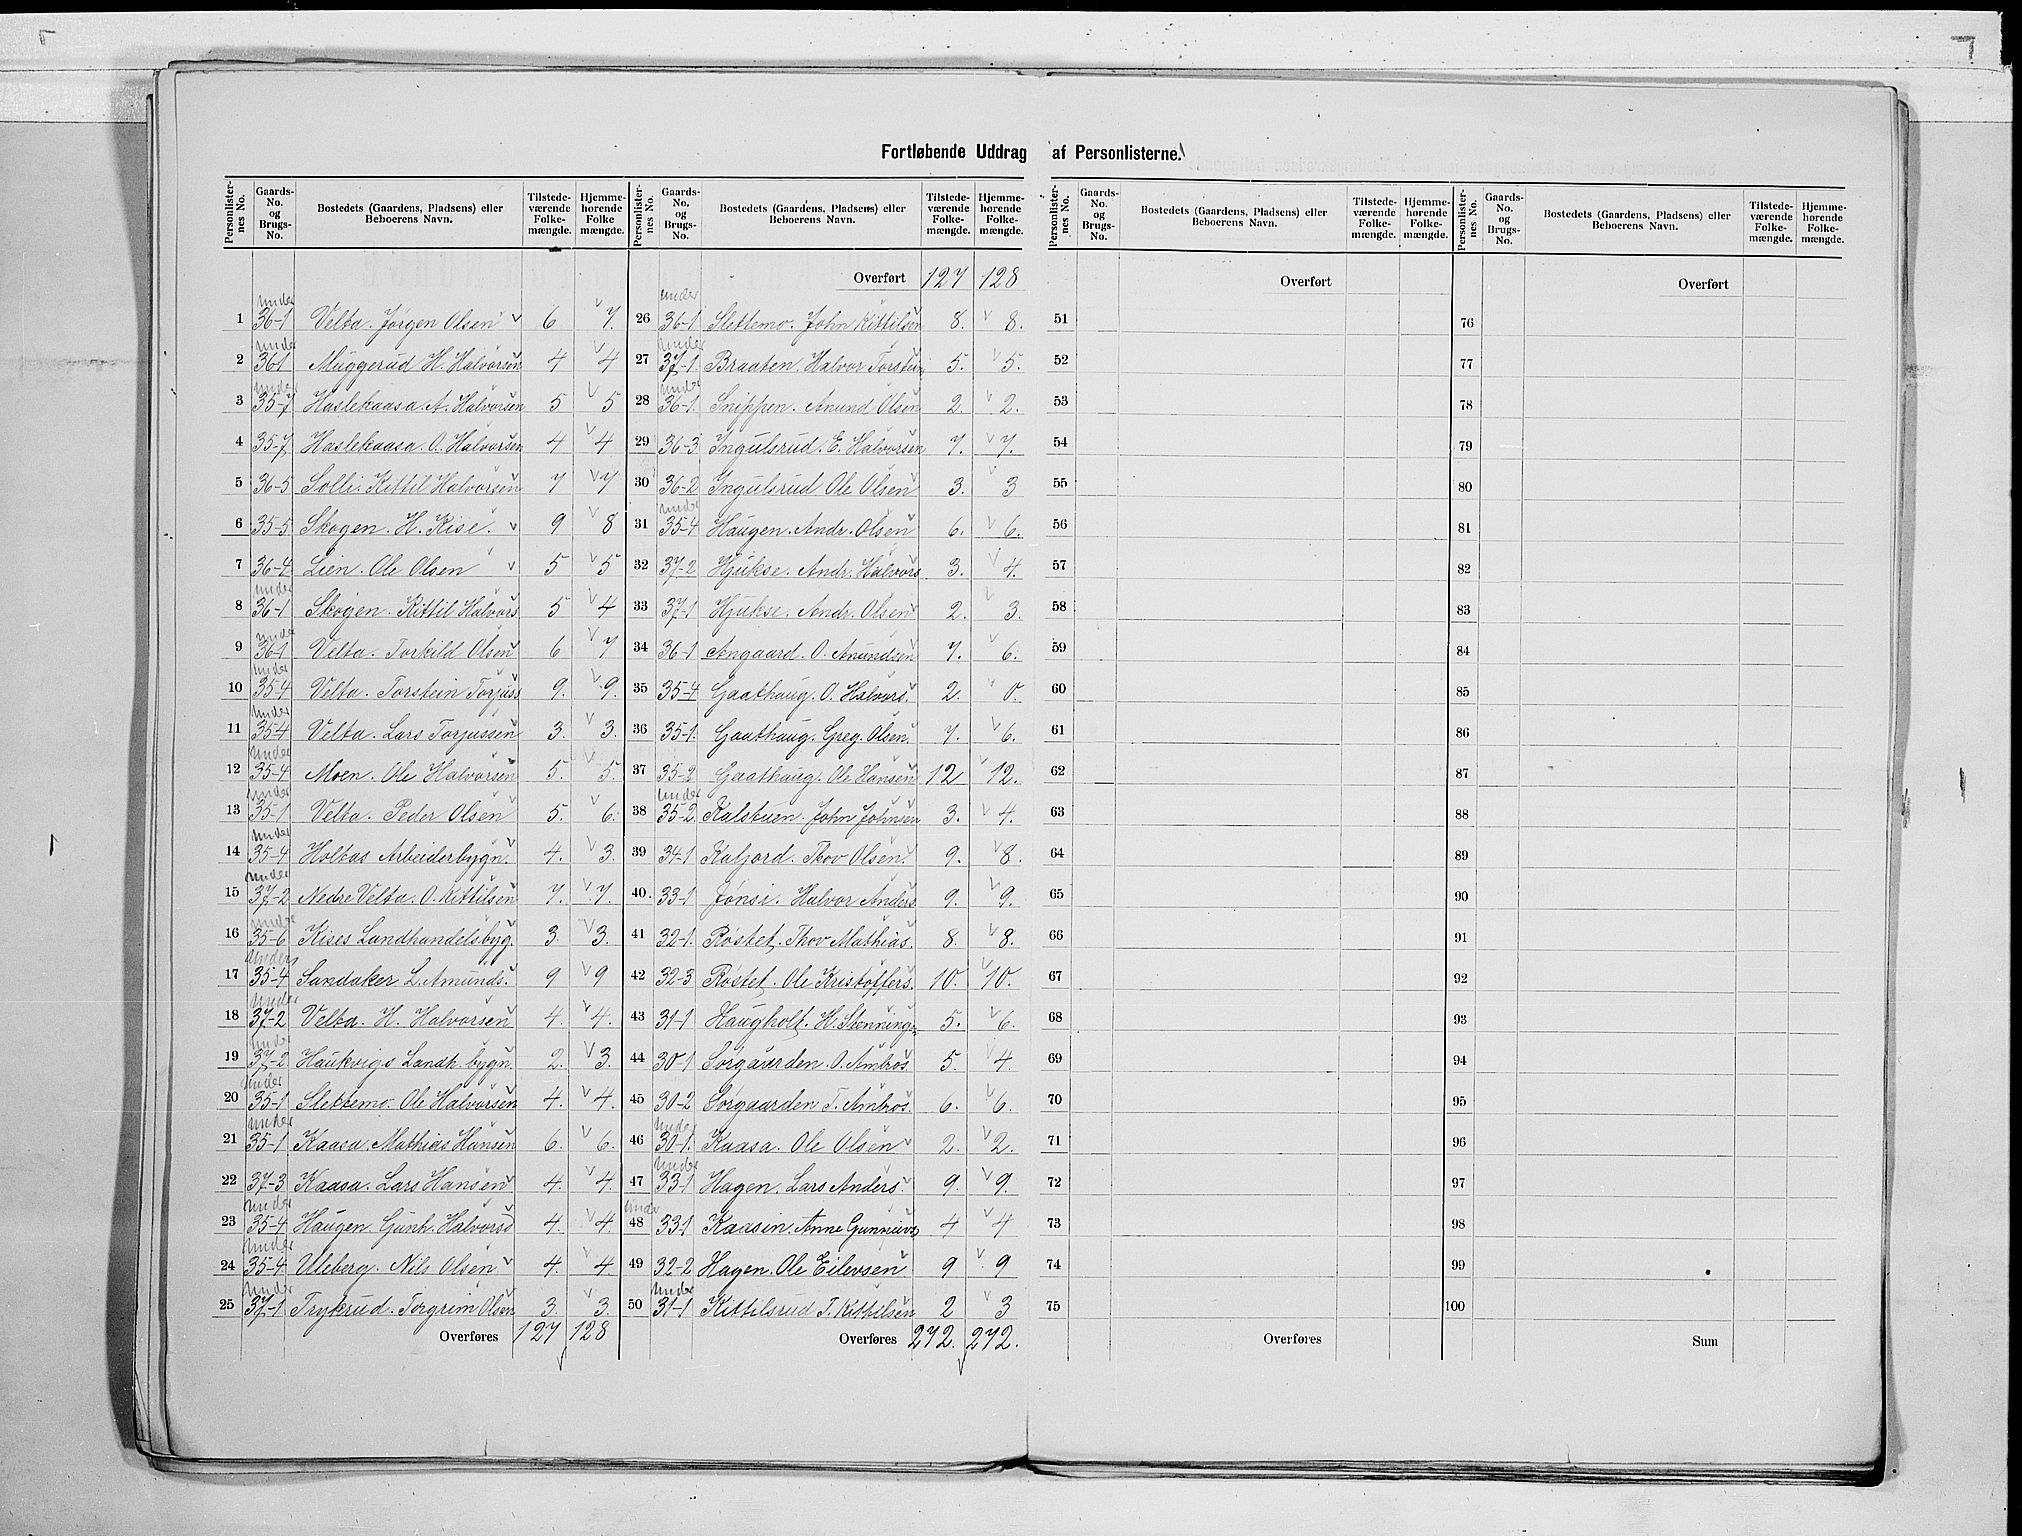 Fortløbende Uddrag af Personlisterne.
Personlisternes No. | Gaards-No. og Brugs-No. | Bostedets (Gaardens, Pladsens) eller Beboerens Navn. | Tilstedeværende Folkemængde. | Hjemmehørende Folkemængde.
1 under 36-1 Velta. Jørgen Olsen 6 7.
2 under 36-1 Muggerud H. Halvorsen 4 4
3 under 35-7 Haslekaasa. A. Halvorsen 5 5
4 35-7 Haslekaasa. O. Halvorsen 4 4
5 36-5 Solli. Kittil Halvorsen 7 7
6 35-5 Skogen. H. Kise. 9 8
7 36-4 Lien. Ole Olsen 5 5
8 under 36-1 Skogen. Kittil Halvors 5 4
9 under 36-1 Velta. Torkild Olsen 6 7
10 under 35-4 Velta. Torstein Torjuss 9. 9.
11 under 35-4 Velta. Lars Torjussen 3. 3.
12 under 35-4 Moen. Ole Halvorsen 5. 5.
13 under 35-1 Velta. Peder Olsen 5. 6.
14 under 35-4 Holtas Arbeiderbygn. 4. 3.
15 under 37-2 Nedre Velta. O. Kittilsen 7. 7.
16 under 35-6 Kises Landhandelsbyg. 3. 3.
17 under 35-4 Sandaker L. Amunds. 9 9
18 under 37-2 Velta. H. Halvorsen 4. 4.
19 under 37-2 Haukvigs Landh. bygn. 2. 3.
20 under 35-1 Slettemo. Ole Halvorsen 4. 4.
21 under 35-1 Kaasa. Mathias Hansen 6. 6.
22 37-3 Kaasa. Lars Hansen 4. 4.
23 under 35-4 Haugen Gunh. Halvorsd 4. 4
24 under 35-4 Uleberg. Nils Olsen 4. 4.
25 under 37-1 Trykrud. Torgrim Olsen 3. 3.
Overføres 127 128
Personlisternes No. | Gaards-No. og Brugs-No. | Bostedets (Gaardens, Pladsens) eller Beboerens Navn. | Tilstedeværende Folkemængde. | Hjemmehørende Folkemængde.
Overført 127 128
26 under 36-1 Slettemo. John Kittilsen 8. 8.
27 under 37-1. Braaten. Halvor Torstein 5. 5.
28 under 36-1. Snippen. Anund Olsen 2. 2.
29 36-3 Ingulsrud. E. Halvorsen 7. 7.
30 36-2 Ingulsrud Ole Olsen 3. 3
31 under 35-4 Haugen. Andr. Olsen 6. 6.
32 37-2 Hjukse. Andr. Halvors 3. 4.
33 37-1 Hjukse. Andr. Olsen 2. 3.
34 36-1 Angaard. O. Anundsen 7. 6.
35 35-4 Gaathaug. O. Halvors. 2. 0.
36 35-1. Gaathaug. Greg. Olsen. 7. 6.
37 35-2 Gaathaug. Ole Hansen 12 12.
38 under 35-2. Kalstuen. John Johnsen 3. 4.
39 34-1 Kafjord. Thov Olsen. 9. 8.
40. 33-1 Jønsi. Halvor Anders 9. 9.
41 32-1. Røstet. Thov Mathias. 8. 8.
42 32-3 Røstet. Ole Kristoffers. 10. 10.
43 31-1 Haugholt. H. 5. 6.
44 30-1 Sørgaarden. O. Ambros. 5. 4.
45 30-2 Sørgaarden T. Ambros. 6. 6.
46 under 30-1. Kaasa. Ole Olsen 2. 2.
47 under 33-1 Hagen. Lars Anders. 9. 9.
48 under 33-1 Kaasin. Anne 4 4
49 32-2 Hagen. Ole Eilevsen 9 9
50 under 31-1 Kittilsrud T. Kittilsen 2 3
Overføres 272. 272.
Personlisternes No. | Gaards-No. og Brugs-No. | Bostedets (Gaardens, Pladsens) eller Beboerens Navn. | Tilstedeværende Folkemængde. | Hjemmehørende Folkemængde.
Overført
51
52
53
54
55
56
57
58
59
60
61
62
63
64
65
66
67
68
69
70
71
72
73
74
75
Overføres
Personlisternes No. | Gaards-No. og Brugs-No. | Bostedets (Gaardens, Pladsens) eller Beboerens Navn. | Tilstedeværende Folkemængde. | Hjemmehørende Folkemængde.
Overført
76
77
78
79
80
81
82
83
84
85
86
87
88
89
90
91
92
93
94
95
96
97
98
99
100
Sum